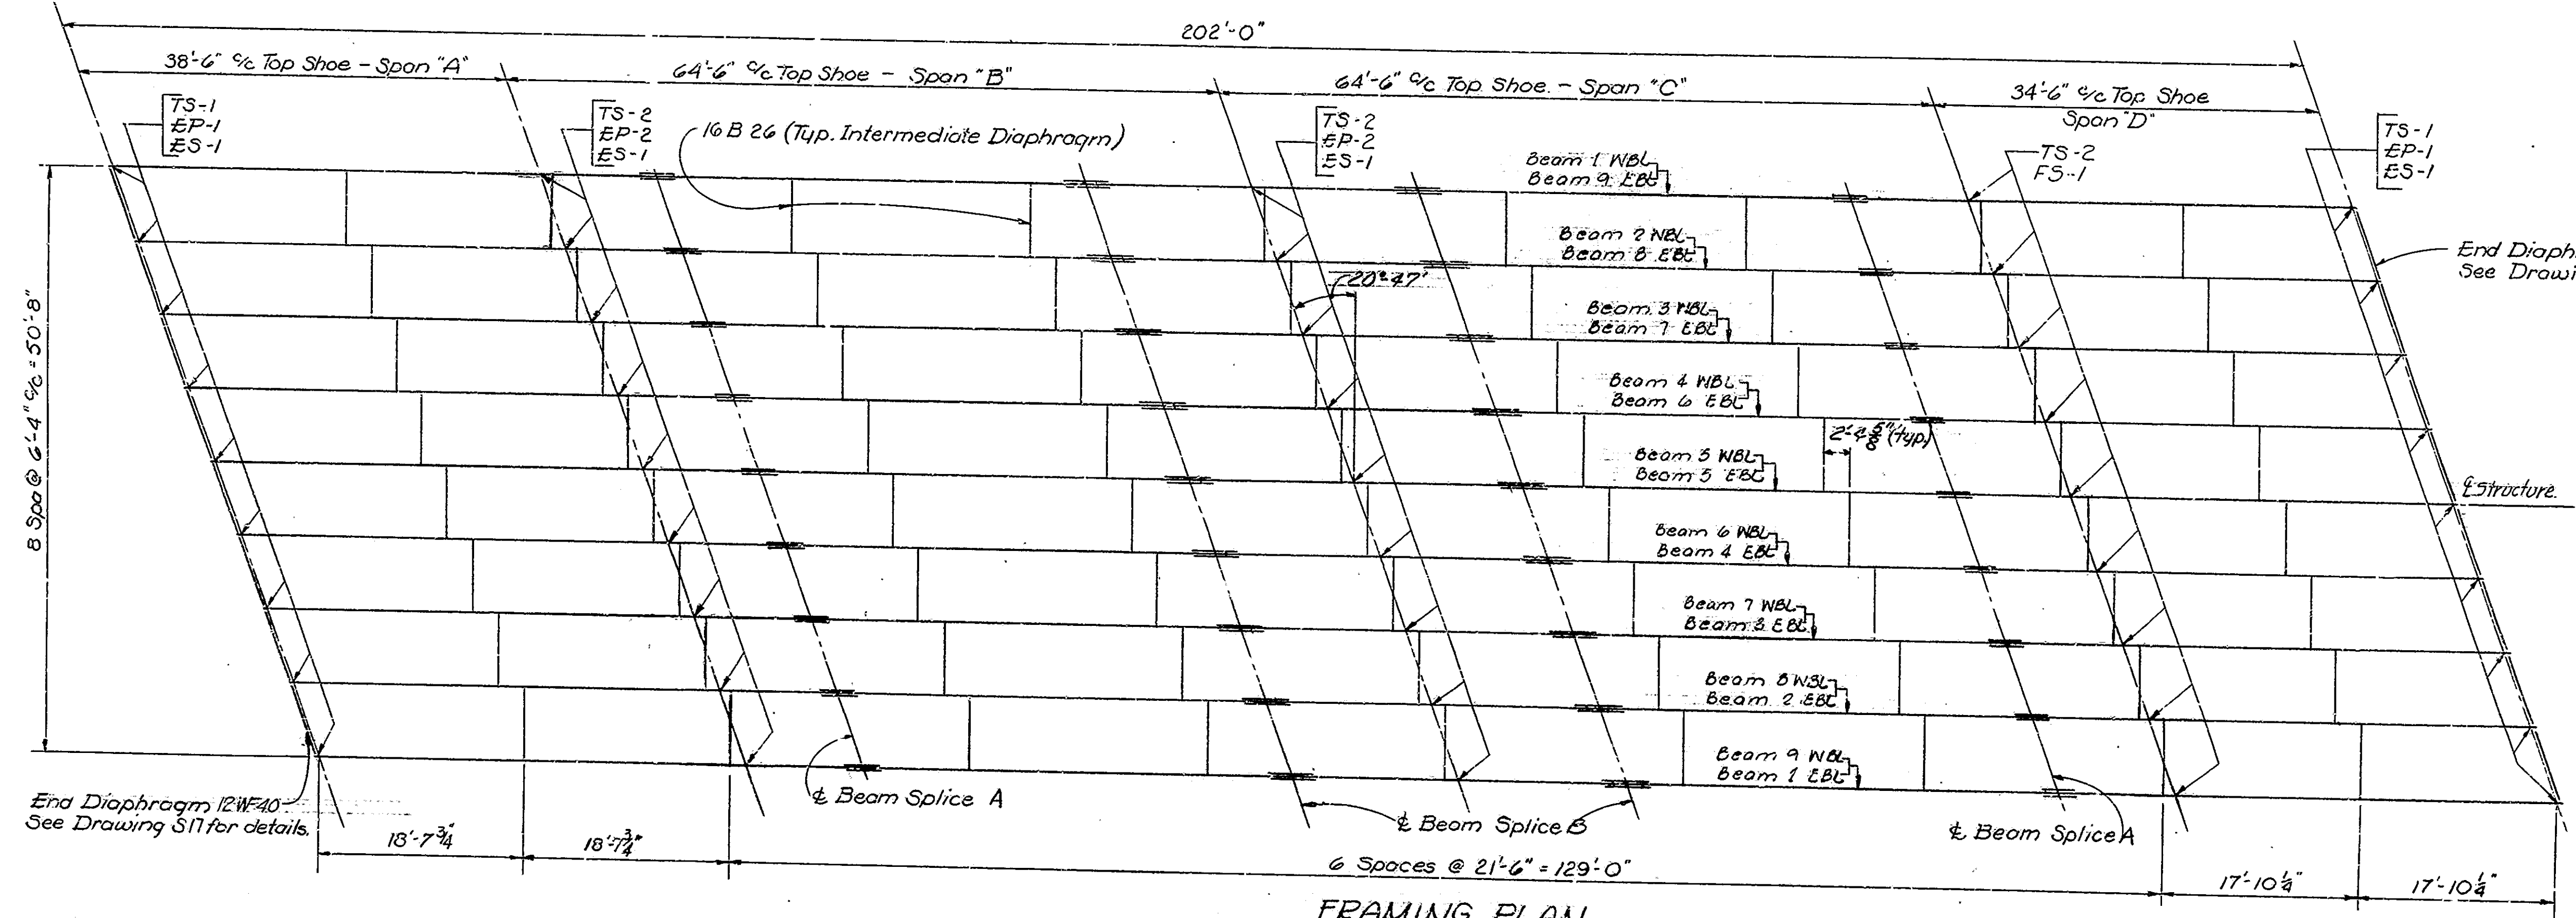 202'-0"
38'-6" c/c Top Shoe - Span "A"
64'-6" c/c Top Shoe - Span "B"
64'-6" c/c Top Shoe. - Span "C"
34'-6" c/c Top Shoe
Span "D"
TS-1
EP-1
ES-1
TS-2
EP-2
ES-1
16 B 26 (Typ. Intermediate Diaphragm)
TS-2
EP-2
ES-1
TS-2
FS-1
TS-1
EP-1
ES-1
Beam 1 WBL
Beam 9 EBL
Beam 2 WBL
Beam 8 EBL
End Diaph
See Drawi
20°-47'
Beam 3 WBL
Beam 7 EBL
8 Spa @ 6'-4" c/c = 50'-8"
Beam 4 WBL
Beam 6 EBL
2'-4 5/8" (typ.)
Beam 5 WBL
Beam 5 EBL
℄ Structure.
Beam 6 WBL
Beam 4 EBL
Beam 7 WBL
Beam 3 EBL
Beam 8 WBL
Beam 2 EBL
Beam 9 WBL
Beam 1 EBL
End Diaphragm 12WF40
See Drawing S17 for details.
℄ Beam Splice A
℄ Beam Splice B
℄ Beam Splice A
18'-7 3/4"
18'-7 3/4"
6 Spaces @ 21'-6" = 129'-0"
17'-10 1/4"
17'-10 1/4"
FRAMING PLAN